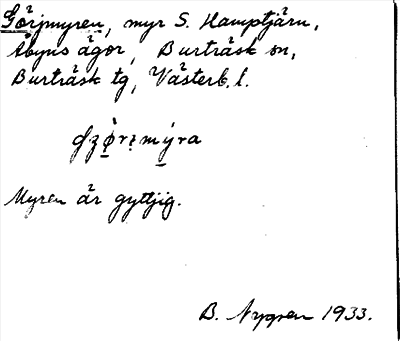 Görjmyren, myr S. Hamptjärn,
Åbyns ägor, Burträsk sn,
Burträsk tg, Västerb. l.
Myren är gyttjig.
B. Nygren 1933.